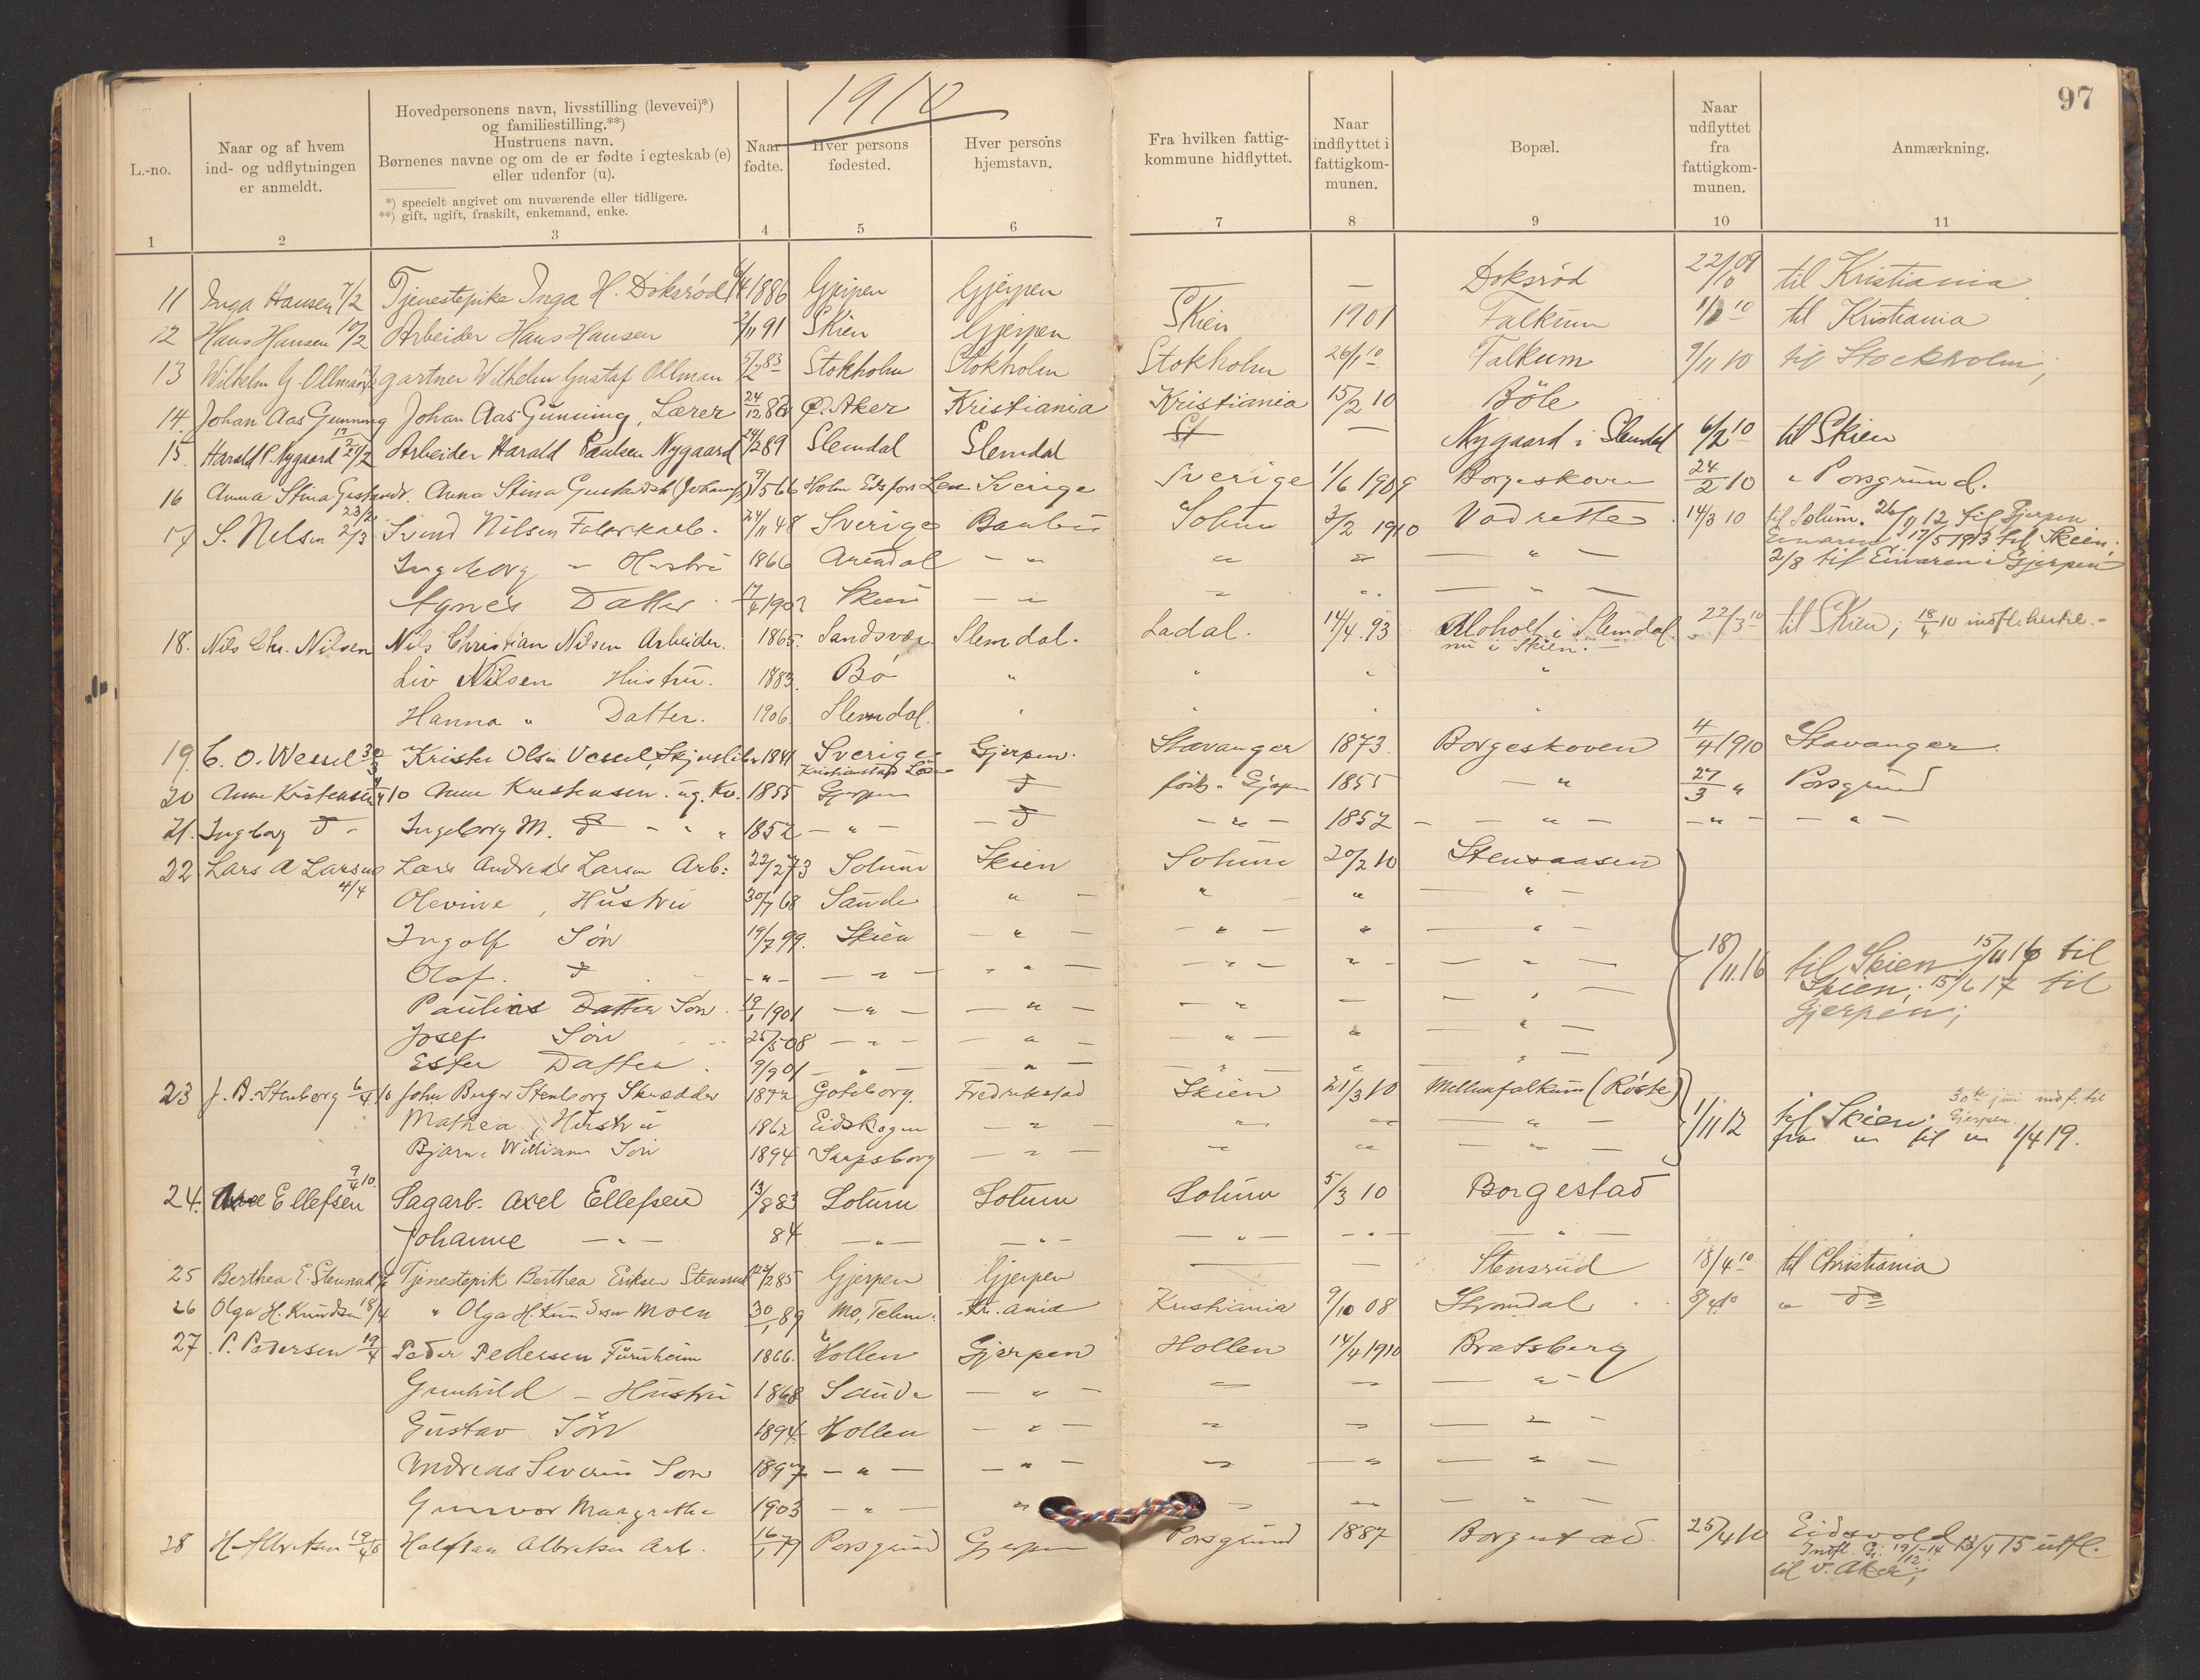 1910
97
L.-no.
Naar og af hvem ind- og udflytningen er anmeldt.
Hovedpersonens navn, livsstilling (levevei)*) og familiestilling.**)
Hustruens navn.
Børnenes navne og om de er fødte i egteskab (e) eller udenfor (u).
*) specielt angivet om nuværende eller tidligere.
**) gift, ugift, fraskilt, enkemand, enke.
Naar fødte.
Hver persons fødested.
Hver persons hjemstavn.
Fra hvilken fattigkommune hidflyttet.
Naar indflyttet i fattigkommunen.
Bopæl.
Naar udflyttet fra fattigkommunen.
Anmærkning.
1 2 3 4 5 6 7 8 9 10 11
11 Inga Hansen 7/2 Tjenestepike Inga H. Doksrød 1886 Gjerpen Gjerpen — — Doksrød 22/10 09 til Kristiania
12 Hans Hansen 10/2 Arbeider Hans Hansen 2/11 91 Skien Gjerpen Skien 1901 Falkum 10 til Kristiania
13 Wilhelm G Ollman gartner Wilhelm Gustaf Ollman 5/2 83 Stokholm Stokholm Stokholm 26/1 10 Falkum 9/11 10 til Stockholm;
14. Johan Aas Gunning Johan Aas Gunning, Lærer 24/12 Aker Kristiania Kristiania 15/2 10 Böle
15 Harald P. Nygaard 21/2 Arbeider Harald Paulsen Nygaard 89 Slemdal Slemdal — Nygaard i Slemdal 6/2 10 til Skien
16 Anna Stina Gustavsdt. Anna Stina Gustavsdt 66 Holm Edsfors Len Sverige Sverige 1/6 1909 Borgeskoven 24/2 10 " Porsgrund.
17 S. Nilsen 2/3 Svend Nilsen 24/11 48 Sverige Bamble Solum 3/2 1910 Vadrette 14/3 10 til Solum. 26/11 12 til Gjerpen
Einaren. 17/5 1913 til Skien;
2/8 til Einaren i Gjerpen
Ingeborg — Hustru 1866 Arendal — " " " — " —
Agnes Datter 17/4 1902 Skien — " " " — " —
18. Nils Chr. Nilsen Nils Christian Nilsen Arbeider. 1865. Sandsvær Slemdal. Ladal. 14/4 93 Aloholt i Slemdal. 22/3 10 til Skien; 18/4 10 indfl. hertil. -
nu i Skien. —
Liv Nilsen Hustru. 1883. Bø " " " "
Hanna " Datter. 1906 Slemdal. " " " "
19. C. O. Wessel 30/3 Krister Olsen Vessel, 1841 Sverige Gjerpen. Stavanger 1873. Borgeskoven 4/4 1910 Stavanger.
Kristianstad Læn
20 Anne Kristensen 10 Anne Kristensen. ug. Kv. 1855 Gjerpen Gjerpen 1855 — " 27/3 " Porsgrund
21. Ingborg Ingeborg M. 1852 — " — — " — 1852 — " — — " — — " —
22 Lars A Larsen Lars Andreas Larsen Arb: 22/2 73 Solum Skien Solum 20/2 10 Stensaasen
4/4
Olevine, Hustru 30/7 68 Sande " — " " — " —
Ingolf Søn 19/7 99. Skien — " — — " — " — " —
Olaf. — " — — " — — " — — " — " — " — 18/11.16 til Skien 15/11 16 til
Paulins Datter Søn 19/1 1901 — " — — " — — " — — " — Skien; 15/6 17 til
Josef Søn 25/5 08 — " — — " — — " — " — " — Gjerpen;
Ester Datter. 9/9 01 — " — — " — — " — " — " —
23 J. B. Stenborg 6/4 10 John Birger Stenborg Skrædder 1872 Göteborg. Fredrikstad Skien 21/3 10 Mellemfalkum (Røste) 1/11 12 til Skien. 30te juni indf. til Gjerpen.
Mathea, Hustru 1862 Eidskogen — " — " " — " — fra " til " 1/4 19.
Bjarne William Søn 1894 Sarpsborg — " — " " — " —
24. Axel Ellefsen 9/4 10. Sagarb. Axel Ellefsen 13/8 83 Solum Solum Solum 5/3 10 Borgestad
Johanne — " — 84 — " — — " — — " — — " — — " —
25 Berthea E. Stensrud Tjenestepik Berthea Eriksen Stensrud 85 Gjerpen Gjerpen — — Stensrud 18/4 10 til Christiania
26 Olga H. Knudsen 18/4 " Olga H. Knudsen Moen 30/1 89 Mo, Telem. Kr. ania Kristiania 9/10 08 Strømdal 8/4 10 " do
27 P. Pedersen 19/4 Peder Pedersen Furuheim 1866. Hollen Gjerpen Hollen 14/4 1910 Bratsberg
Gunhild — Hustru 1868 Saude — " — " " — " —
Gustav Søn 1894 Hollen — " — " " — " —
Andreas Severin Søn 1897 — " — — " — " — " — " —
Gunvor Margrethe 1903 — " — " " " — " —
28 H. Albretsen 19/4 Halfdan Albretsen Arb. 16/1 79 Porsgrund Gjerpen Porsgrund 1887 Borgestad 25/4 10 Eidsvold
Indfl. Gj. 19/12-14 13/4 15 utfl.
til V. Aker;